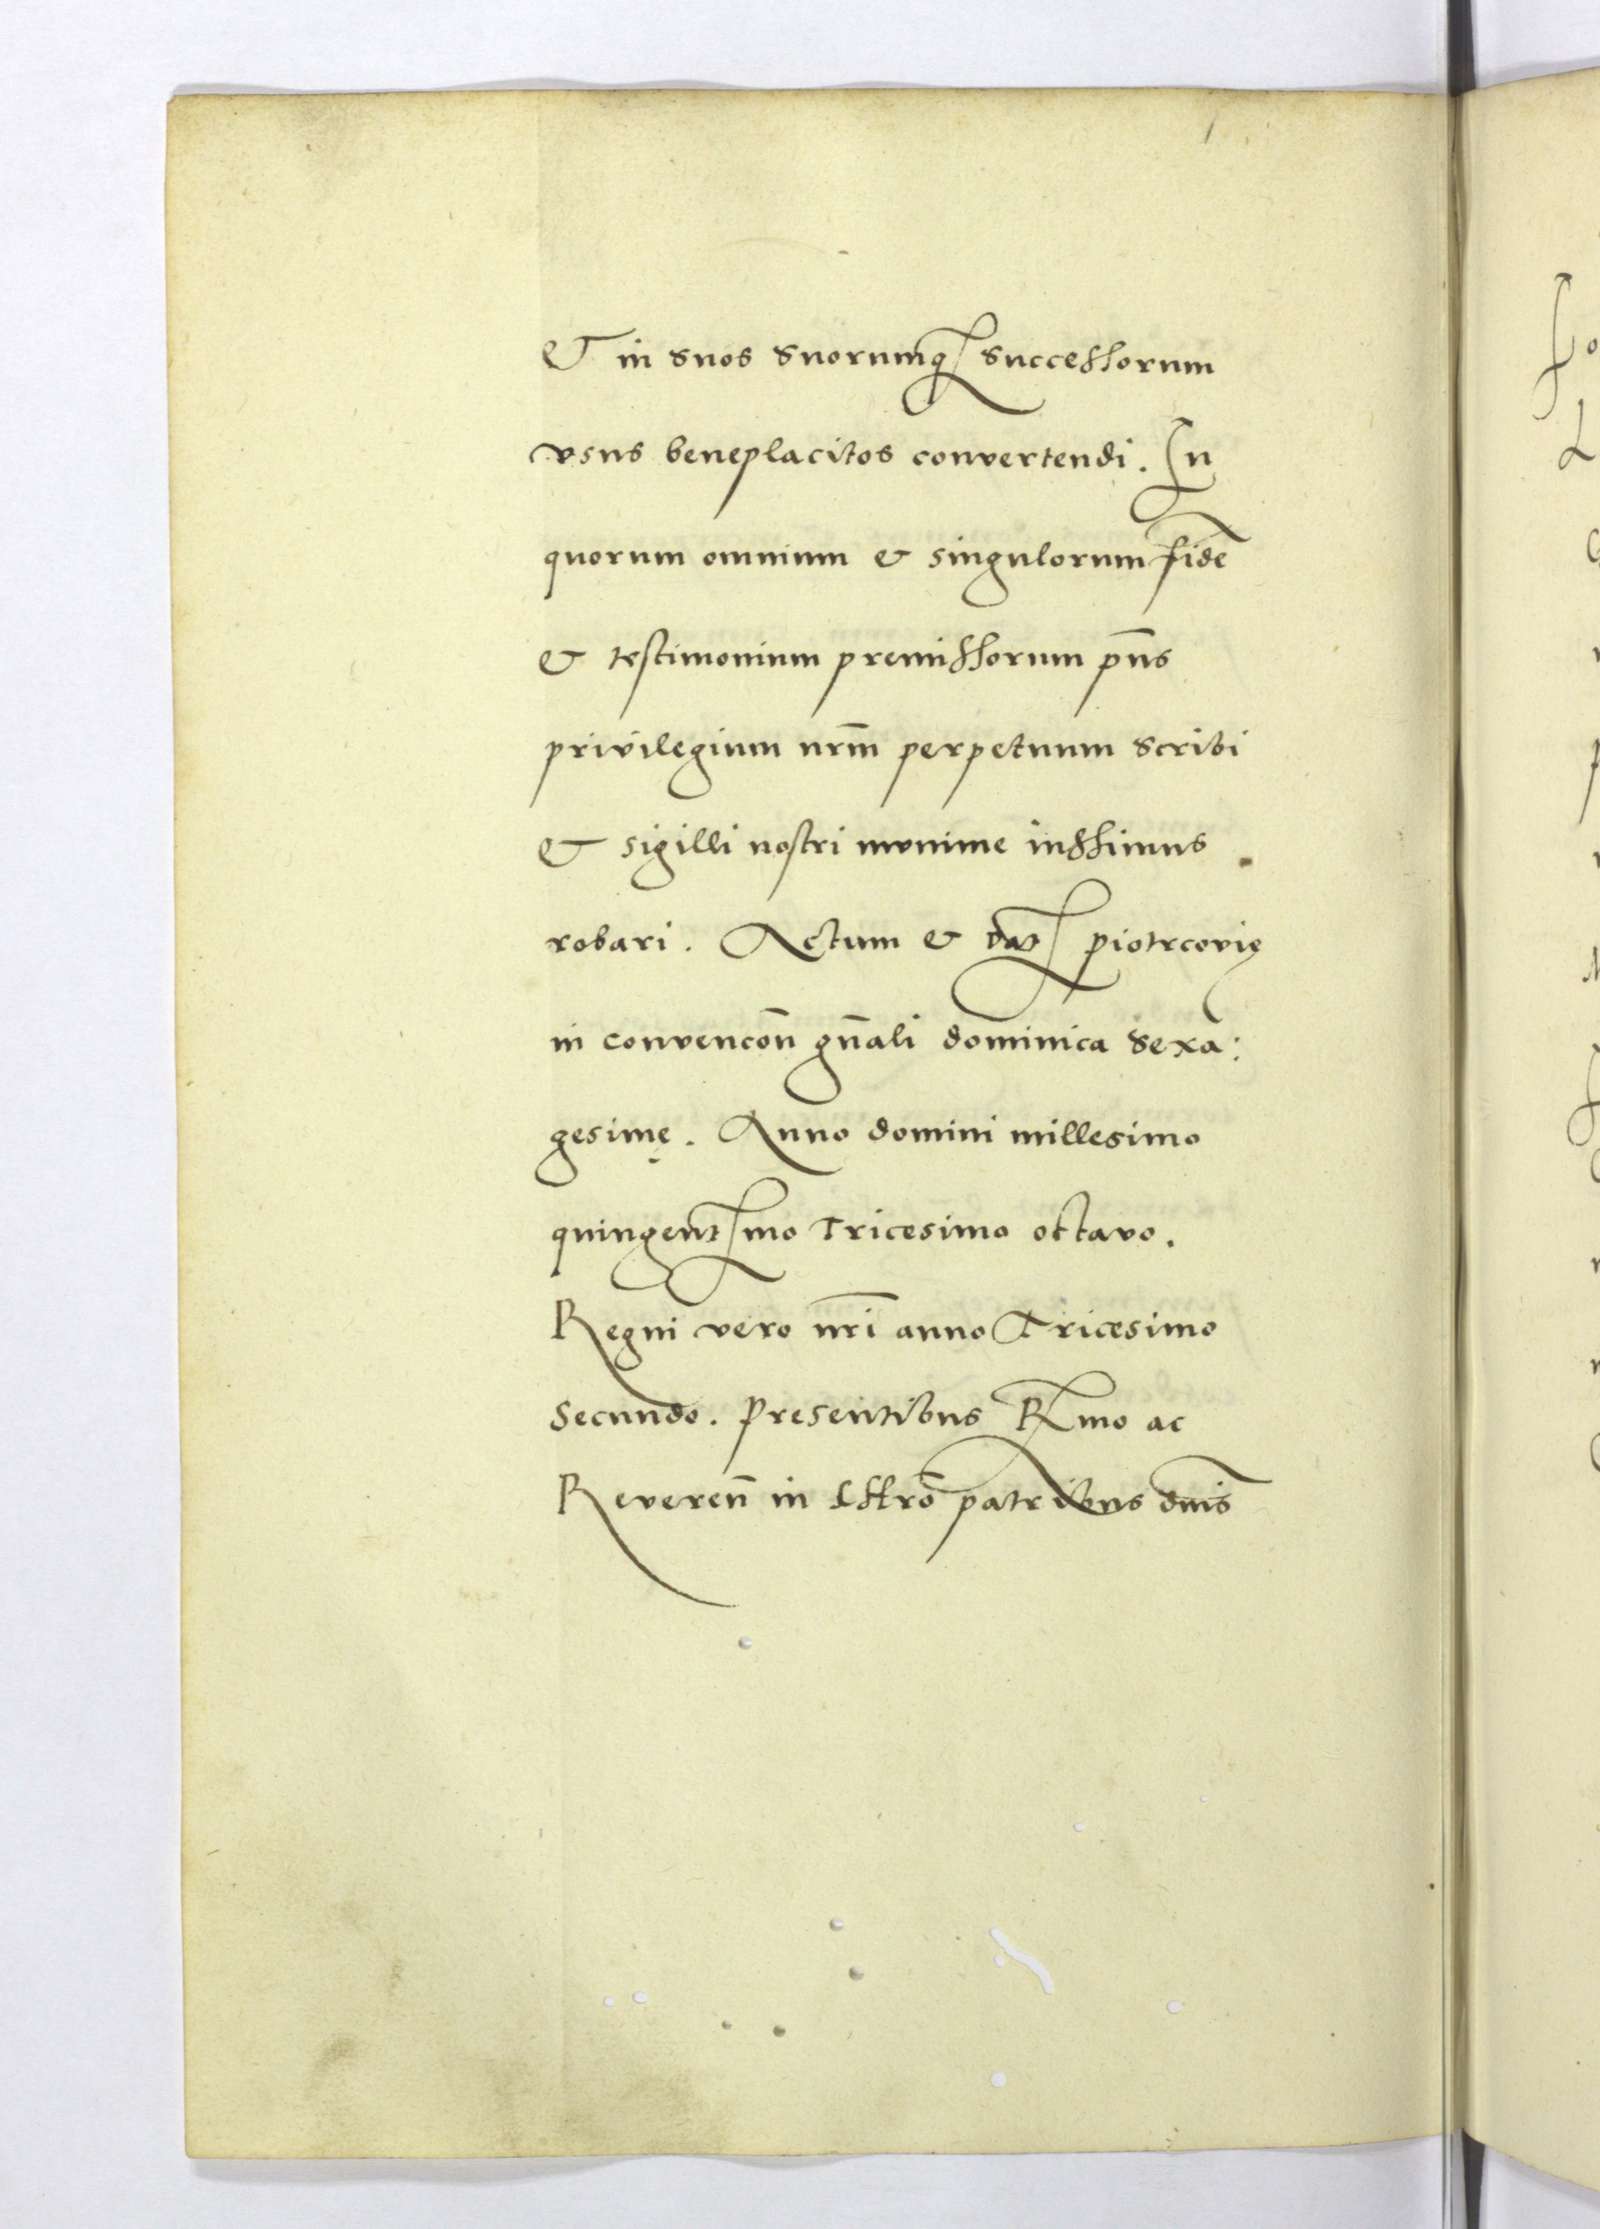 & in suos suorumq successorum
vsus beneplacitos convertendi. In
quorum omnium & singulorum fidē
& testimonium premissorum pn̄s
privilegium nrm̄ perpetuum scribi
& sigilli nostri munime iussimus
robari. Actum & dat piotrcovię
in convencōn gn̄ali dominica sexa:
gesimę. Anno domini millesimo
quingentmo tricesimo octavo.
Regni vero nrī anno Tricesimo
secundo. presentibus Rmo ac
Reveren̄ in chrō patribus dnīs